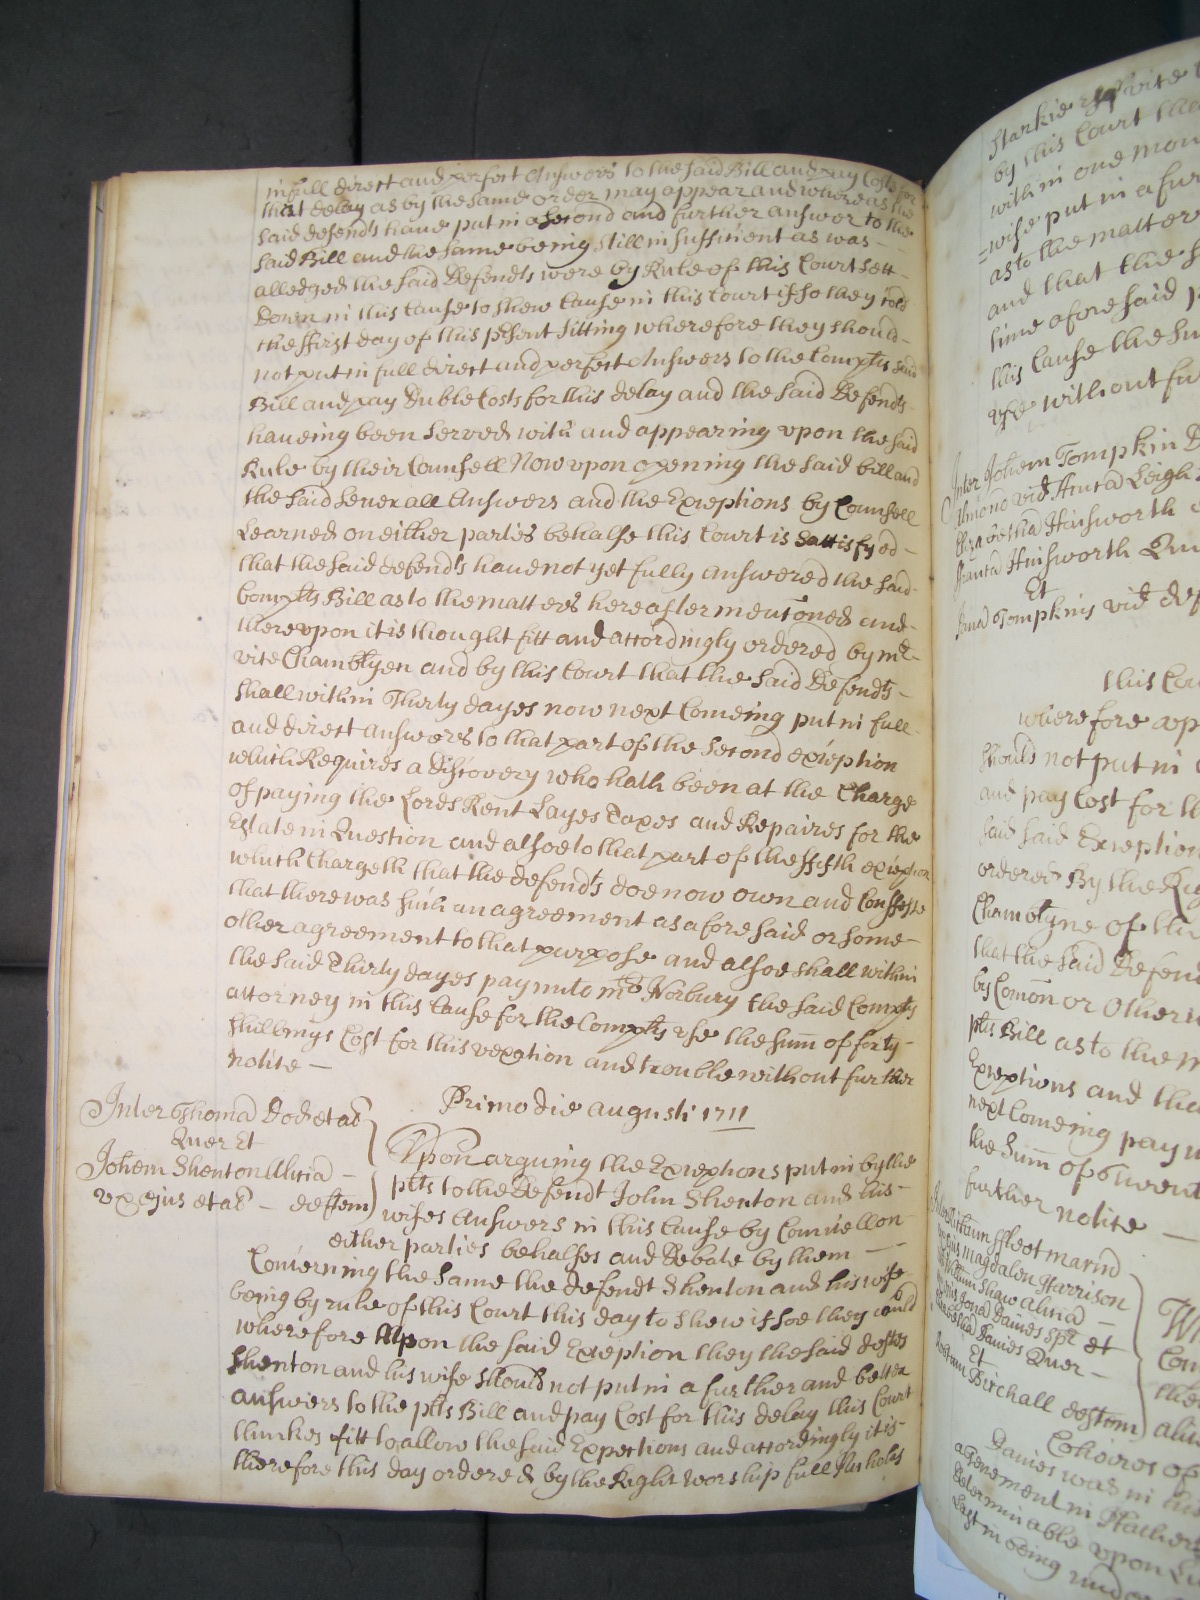 in full direct and perfect Answers to the said Bill and pay Costs for
that delay as by the same order may appear and whereas the
said defendts have put in a second and further answer to the
said Bill and the same being still insufficient as was
alledged the said Defendts were by Rule of this Court sett
Down in this Cause to shew Cause in this Court if so they cold
the ffirst day of this psent Sitting wherefore they should
not put in full direct and perfect Answers to the Complts said
Bill and pay Duble Costs for this delay and the said Defendts
haueing been Served with and appearing vpon the said
Rule by their Counsell Now vpon opening the said bill and
the said Seuerall Answers and the Exceptions by Counsell
Learned on either parties behalfe this Court is Sattisfyed
that the said defendts haue not yet fully answered the said
Complts Bill as to the matters hereafter mentoned and
therevpon it is thought fitt and accordingly ordered by mr
vice Chambtyen and by this Court that the said Defendts
shall within Thirty dayes now next Comeing put in full
and direct answers to that part of the second exception
which Requires a Discovery who hath been at the Charge
of paying the Lords Rent Layes Taxes and Repaires for the
Estate in Question and alsoe to that part of the ffifth exception
which Chargeth that the defendts doe now own and Confesse
that there was such an agreement as aforesaid or some
other agreement to that purpose and alsoe shall within
the said Thirty dayes pay unto mr Norbury the said Complts
attorney in this Cause for the Complts vse the sum of forty
shillings Cost for this vexation and trouble without further
notice
Primo die augusti 1711
Inter Thoma Dod et al
Quer Et
Johem Shenton Alicia
vx ejus et al deftem
Vpon arguing the Exceptions put in by the
plts to the Defendt John Shenton and his
wifes Answers in this Cause by Councell on
either parties behalfes and Debate by them
Concerning the same the Defendt Shenton and his wife
being by rule of this Court this day to shew if soe they could
wherefore Vpon the said Exception they the said deftes
Shenton and his wife should not put in a further and better
answers to the plts Bill and pay Cost for this delay this Court
thinkes fitt to allow the said Expections and accordingly it is
therefore this day ordered by the Right worshipfull Nicholas
Starkie
by this Court
within one mon
wife put in a fur
as to the matters
and that the s
time aforesaid p
this Cause the su
vse without fur
Inter Johem Tompkin
vid Leigh
Elizabetha Hinsworth
Hinsworth Quer
Et
Tompkins vid def
this Cou
wherefore vp
should not put in
and pay Cost for th
said said Exception
ordered By the Rig
Chambtyne of the
that the said Defend
by Comon or Other
plts Bill as to the m
Exceptions and tha
next Comeing pay
the Sum of twent
further notice
ffleet
Magdalen Harrison
Shaw Alicia
Davies Spr et
Davies Quer
Et
Birchall deftem
Coheires of
Davies was in
a Tenement in
determinable vpon
Last in being